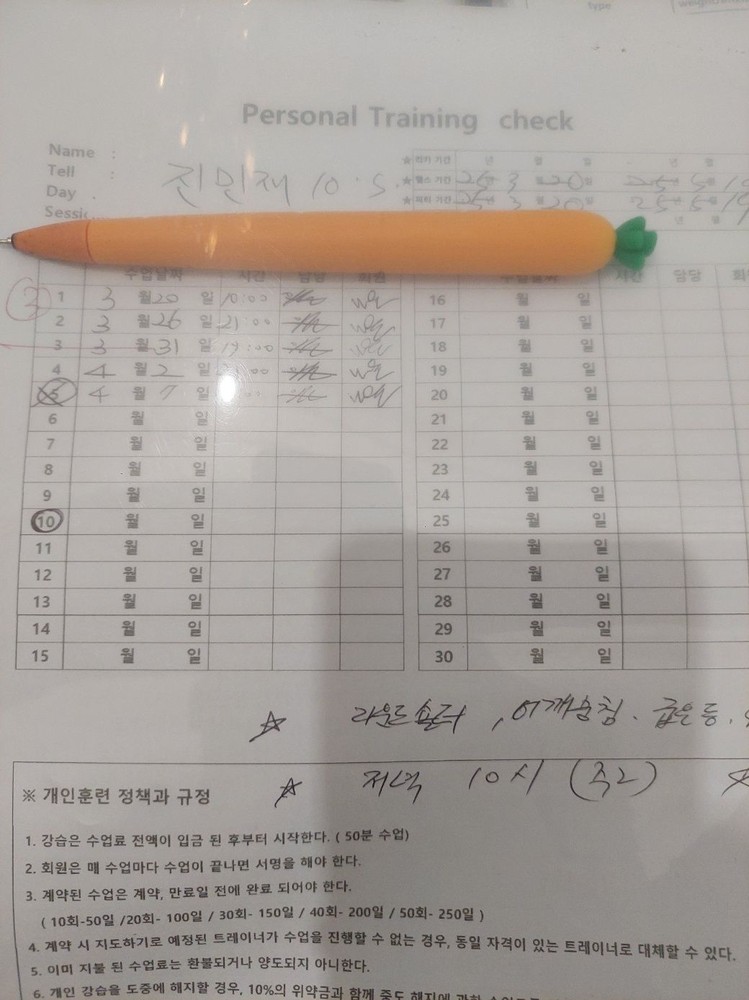 type
Personal Training check
Name :
Tell :
Day .
진민재 10.5.
★ 피티 기간 년 월 일 년 월
★ 헬스 기간 25 3 20일 25 5 19
★ 피티 기간 25 3 20일 25 5 19
년 월
수업날짜 시간 담당 회원 수업날짜 시간 담당
③ 1 3 월 20 일 10:00 16 월 일
2 3 월 26 일 21:00 17 월 일
3 3 월 31 일 19:00 18 월 일
4 4 월 2 일 :00 19 월 일
5 4 월 7 일 20 월 일
6 월 일 21 월 일
7 월 일 22 월 일
8 월 일 23 월 일
9 월 일 24 월 일
10 월 일 25 월 일
11 월 일 26 월 일
12 월 일 27 월 일
13 월 일 28 월 일
14 월 일 29 월 일
15 월 일 30 월 일
☆ 라운드숄더, 어깨충침. 굽은등.
※ 개인훈련 정책과 규정 ☆ 저녁 10시 (주2) ☆
1. 강습은 수업료 전액이 입금 된 후부터 시작한다. ( 50분 수업)
2. 회원은 매 수업마다 수업이 끝나면 서명을 해야 한다.
3. 계약된 수업은 계약, 만료일 전에 완료 되어야 한다.
( 10회-50일 /20회- 100일 / 30회- 150일 / 40회- 200일 / 50회- 250일 )
4. 계약 시 지도하기로 예정된 트레이너가 수업을 진행할 수 없는 경우, 동일 자격이 있는 트레이너로 대체할 수 있다.
5. 이미 지불 된 수업료는 환불되거나 양도되지 아니한다.
6. 개인 강습을 도중에 해지할 경우, 10%의 위약금과 함께 중도 해지에